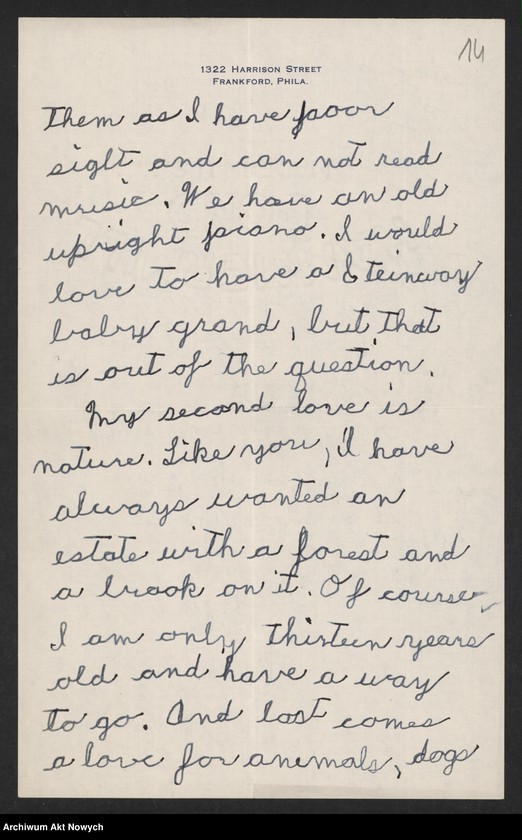 14
1322 Harrison Street
Frankford, Phila.
them as I have poor
sight and can not read
music. We have an old
upright piano. I would
love to have a Steinway
baby grand, but that
is out of the question.
My second love is
nature. Like you, I have
always wanted an
estate with a forest and
a brook on it. Of course,
I am only thirteen years
old and have a way
to go. And last comes
a love for animals, dogs
Archiwum Akt Nowych